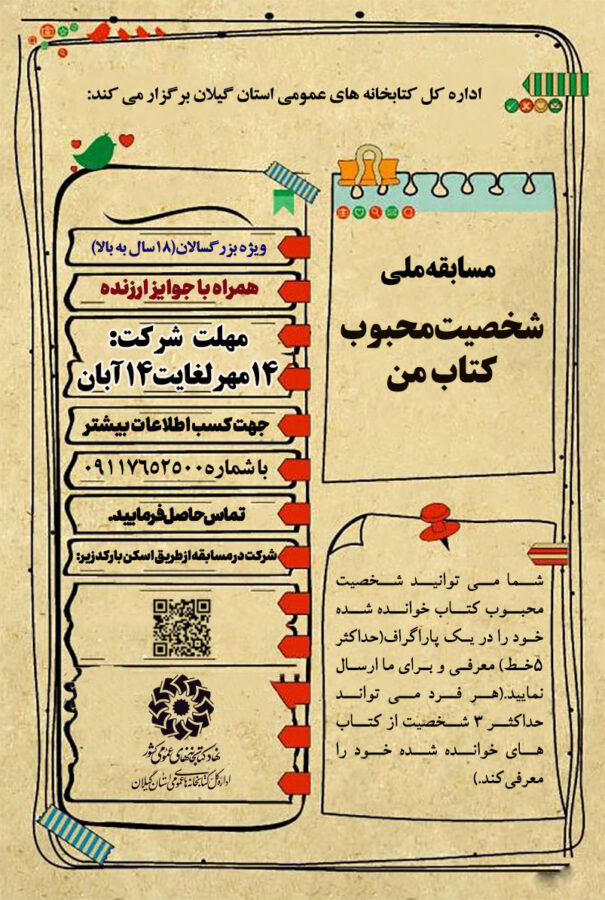 اداره کل کتابخانه های عمومی استان گیلان برگزار می کند:
مسابقه ملی
شخصیت محبوب
کتاب من
شما می توانید شخصیت
محبوب کتاب خوانده شده
خود را در یک پاراگراف(حداکثر
۵خط) معرفی و برای ما ارسال
نمایید.(هر فرد می تواند
حداکثر ۳ شخصیت از کتاب
های خوانده شده خود را
معرفی کند.)
ویژه بزرگسالان(۱۸سال به بالا)
همراه با جوایز ارزنده
مهلت شرکت:
۱۴مهر لغایت ۱۴آبان
جهت کسب اطلاعات بیشتر
با شماره ۰۹۱۱۷۶۵۲۵۰۰
تماس حاصل فرمایید.
شرکت در مسابقه از طریق اسکن بارکد زیر:
نهاد کتابخانه‌های عمومی کشور
اداره کل کتابخانه‌های عمومی استان گیلان